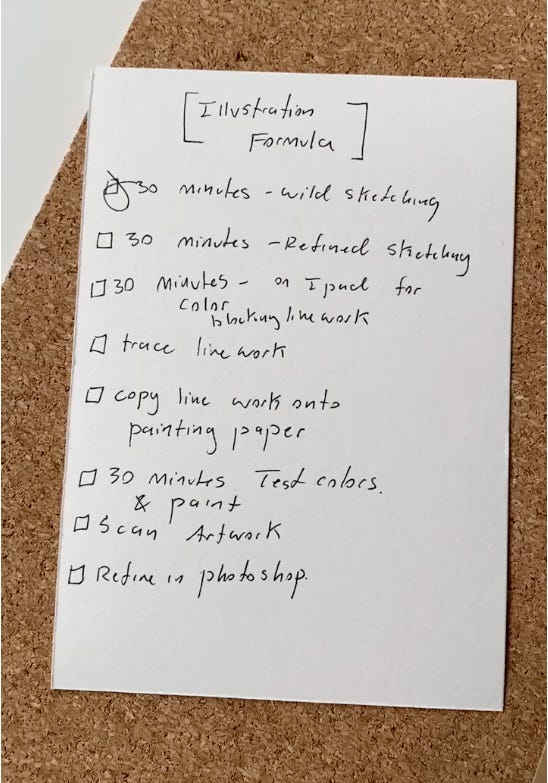 [Illustration
Formula]
30 minutes - wild sketching
30 minutes - Refined sketching
30 minutes - on Ipad for
color
blocking line work
trace line work
copy line work onto
painting paper
30 minutes Test colors.
& paint
Scan Artwork
Refine in photoshop.